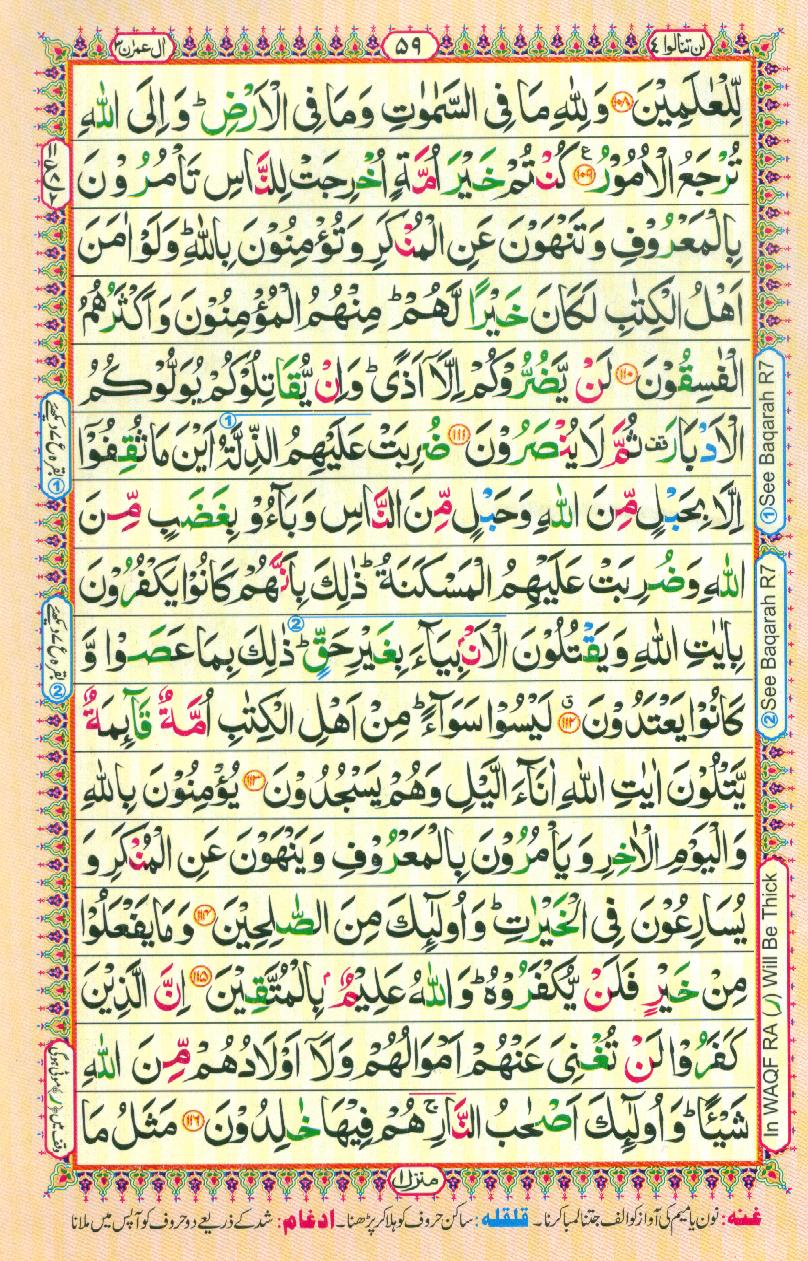 لن تنالوا ٤
٥٩
ال عمرٰن ٣
لِّلْعٰلَمِيْنَ ﴿١٠٨﴾ وَلِلّٰهِ مَا فِى السَّمٰوٰتِ وَمَا فِى الْاَرْضِ ؕ وَاِلَى اللّٰهِ
تُرْجَعُ الْاُمُوْرُ ﴿١٠٩﴾ ع كُنْتُمْ خَيْرَ اُمَّةٍ اُخْرِجَتْ لِلنَّاسِ تَاْمُرُوْنَ
بِالْمَعْرُوْفِ وَتَنْهَوْنَ عَنِ الْمُنْكَرِ وَتُؤْمِنُوْنَ بِاللّٰهِ ؕ وَلَوْ اٰمَنَ
اَهْلُ الْكِتٰبِ لَكَانَ خَيْرًا لَّهُمْ ؕ مِنْهُمُ الْمُؤْمِنُوْنَ وَاَكْثَرُهُمُ
الْفٰسِقُوْنَ ﴿١١٠﴾ لَنْ يَّضُرُّوْكُمْ اِلَّاۤ اَذًى ؕ وَاِنْ يُّقَاتِلُوْكُمْ يُوَلُّوْكُمُ
الْاَدْبَارَ قف ثُمَّ لَا يُنْصَرُوْنَ ﴿١١١﴾ ضُرِبَتْ عَلَيْهِمُ الذِّلَّةُ ① اَيْنَ مَا ثُقِفُوْۤا
اِلَّا بِحَبْلٍ مِّنَ اللّٰهِ وَحَبْلٍ مِّنَ النَّاسِ وَبَآءُوْ بِغَضَبٍ مِّنَ
اللّٰهِ وَضُرِبَتْ عَلَيْهِمُ الْمَسْكَنَةُ ؕ ذٰلِكَ بِاَنَّهُمْ كَانُوْا يَكْفُرُوْنَ
بِاٰيٰتِ اللّٰهِ وَيَقْتُلُوْنَ الْاَنْۢبِيَآءَ بِغَيْرِ حَقٍّ ؕ ② ذٰلِكَ بِمَا عَصَوْا وَّ
كَانُوْا يَعْتَدُوْنَ ﴿١١٢﴾ ق لَيْسُوْا سَوَآءً ؕ مِنْ اَهْلِ الْكِتٰبِ اُمَّةٌ قَآئِمَةٌ
يَّتْلُوْنَ اٰيٰتِ اللّٰهِ اٰنَآءَ الَّيْلِ وَهُمْ يَسْجُدُوْنَ ﴿١١٣﴾ يُؤْمِنُوْنَ بِاللّٰهِ
وَالْيَوْمِ الْاٰخِرِ وَيَاْمُرُوْنَ بِالْمَعْرُوْفِ وَيَنْهَوْنَ عَنِ الْمُنْكَرِ وَ
يُسَارِعُوْنَ فِى الْخَيْرٰتِ ؕ وَاُولٰٓئِكَ مِنَ الصّٰلِحِيْنَ ﴿١١٤﴾ وَمَا يَفْعَلُوْا
مِنْ خَيْرٍ فَلَنْ يُّكْفَرُوْهُ ؕ وَاللّٰهُ عَلِيْمٌۢ بِالْمُتَّقِيْنَ ﴿١١٥﴾ اِنَّ الَّذِيْنَ
كَفَرُوْا لَنْ تُغْنِىَ عَنْهُمْ اَمْوَالُهُمْ وَلَاۤ اَوْلَادُهُمْ مِّنَ اللّٰهِ
شَيْئًا ؕ وَاُولٰٓئِكَ اَصْحٰبُ النَّارِ ۚ هُمْ فِيْهَا خٰلِدُوْنَ ﴿١١٦﴾ مَثَلُ مَا
① See Baqarah R7
② See Baqarah R7
In WAQF RA (ر) Will Be Thick
① بقرہ ع ۷ دیکھئے
② بقرہ ع ۷ دیکھئے
وقف میں ﴿ر﴾ موٹی ہوگی
منزل ١
غنہ: نون یا میم کی آواز کو الف جتنا لمبا کرنا۔ قلقلہ: ساکن حروف کو ہلا کر پڑھنا۔ ادغام: شد کے ذریعے دو حروف کو آپس میں ملانا